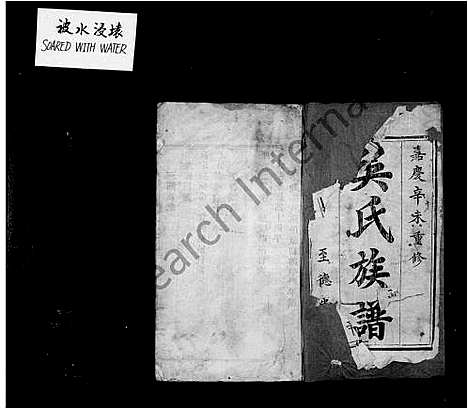 被水浸壞
SOARED WITH WATER
嘉慶辛未重修
吳氏族譜
至德
earch Interna